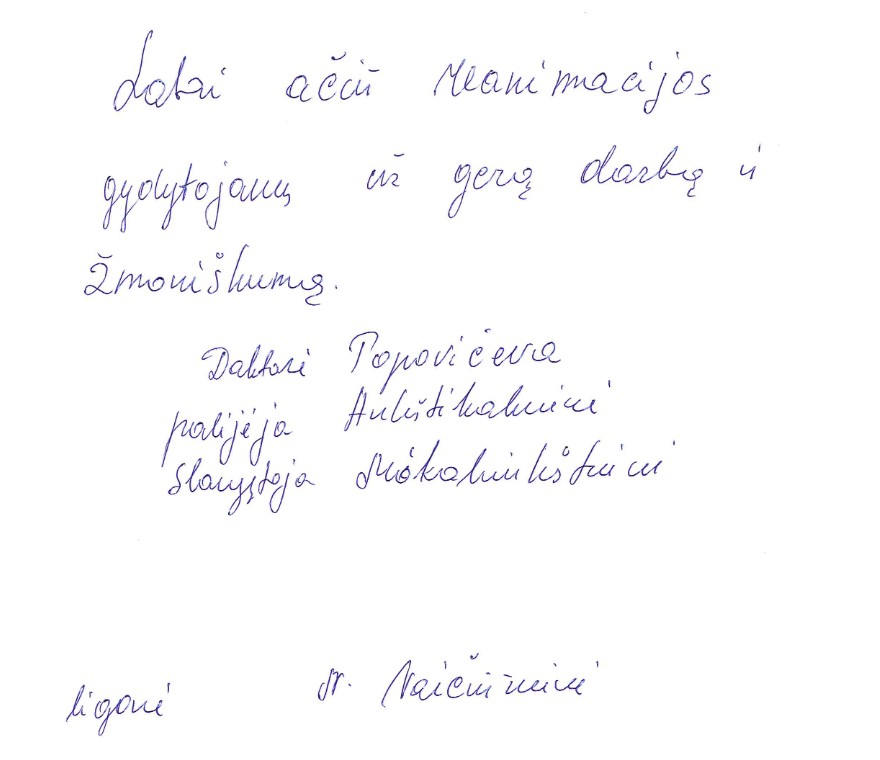 Labai ačiū reanimacijos
gydytojams už gerą darbą ir
žmoniškumą.
Daktarė Popovičeva
palijėja Aukštikalnienė
slaugytoja
ligonė N. Naičiūnienė